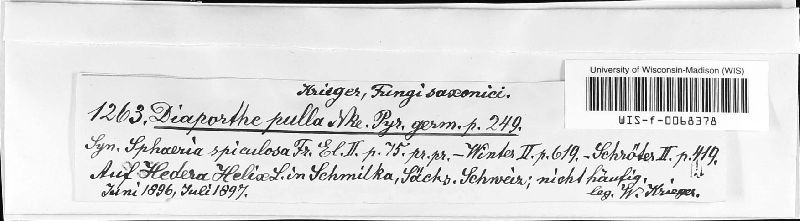 Krieger, Fungi saxonici.
University of Wisconsin-Madison (WIS)
WIS-f-0068378
1263. Diaporthe pulla Nke. Pyr. germ. p. 249.
Syn. Sphaeria spiculosa Fr. El. II. p. 75. pr. pr. – Winter II. p. 619, – Schröter II. p. 419.
Auf Hedera Helix L. in Schmilka, Sächs. Schweiz; nicht häufig.
Juni 1896, Juli 1897.
leg. W. Krieger.